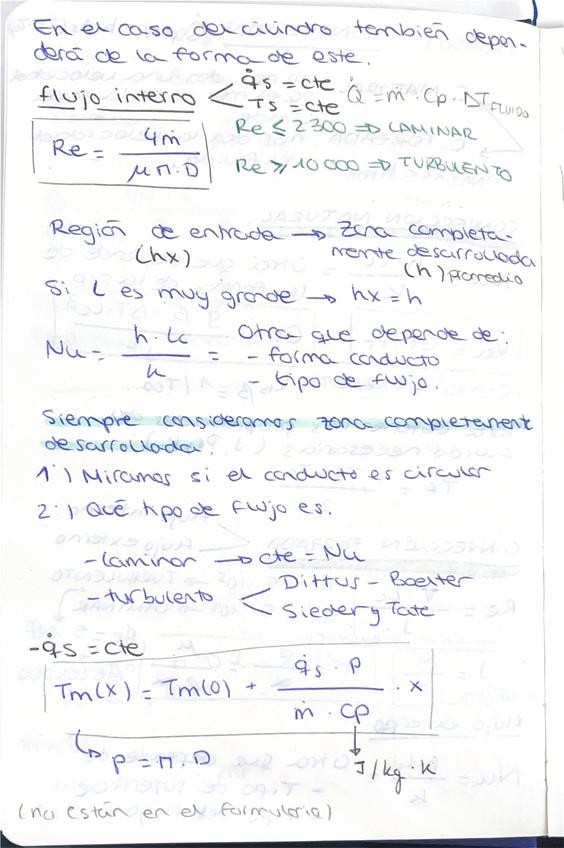 En el caso del cilindro también depen-
derá de la forma de este.
flujo interno < q̇s = cte
Ts = cte
Q̇ = ṁ · Cp · DT FLUIDO
Re = 4ṁ / μπ·D
Re ≤ 2300 ⇒ LAMINAR
Re ⩾ 10000 ⇒ TURBULENTO
Región de entrada → Zona completa-
(hx)
mente desarrollada
(h) promedio
Si L es muy grande → hx = h
Nu = h·Lc / k = Otra que depende de:
- forma conducto
- tipo de flujo.
Siempre consideramos zona completament
desarrollada:
1º) Miramos si el conducto es circular
2º) Qué tipo de flujo es:
- Laminar → cte = Nu
- turbulento < Dittus - Boelter
Sieder y Tate
- q̇s = cte
Tm(x) = Tm(0) + q̇s · p / ṁ · Cp · x
↳ p = π · D
J/kg·K
(no están en el formulario)